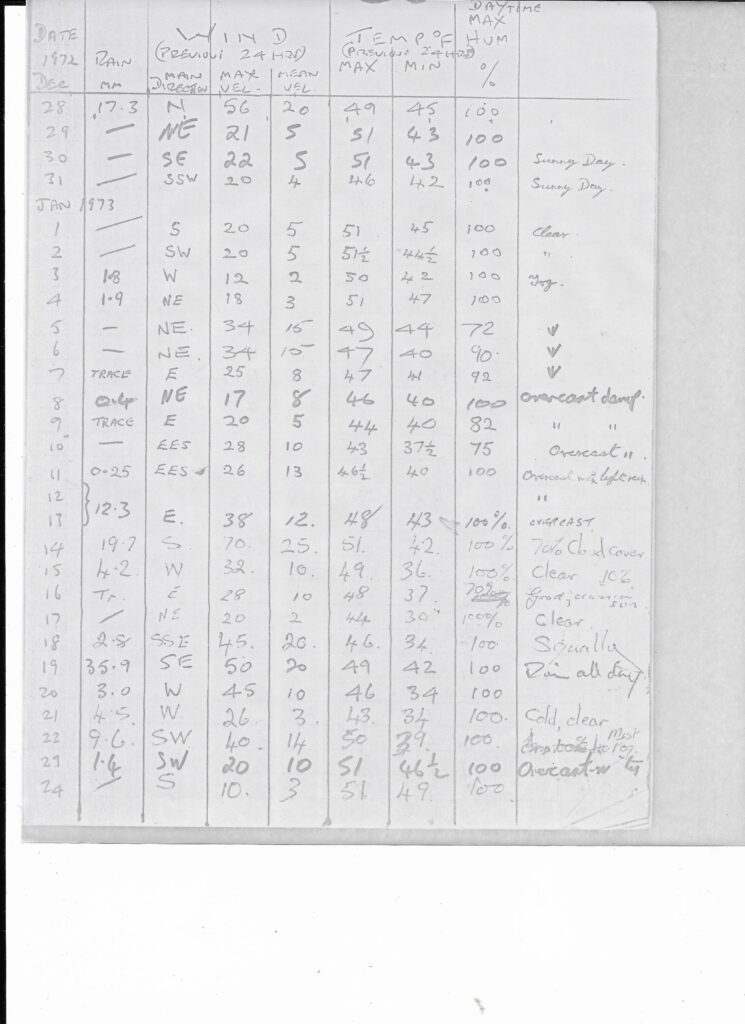 DAYTIME
DATE WIND TEMP °F MAX
1972 RAIN (PREVIOUS 24 HRS) (PREVIOUS 24 HRS) HUM
DEC MM MAIN DIRECTION MAX VEL. MEAN VEL. MAX MIN %
28 17.3 N 56 20 49 45 100
29 — NE 21 5 51 43 100
30 — SE 22 5 51 43 100 Sunny Day.
31 — SSW 20 4 46 42 100 Sunny Day.
JAN 1973
1 — S 20 5 51 45 100 Clear.
2 — SW 20 5 51½ 44½ 100 "
3 1.8 W 12 2 50 42 100 Fog.
4 1.9 NE 18 3 51 47 100
5 — NE. 34 15 49 44 72
6 — NE. 34 15 47 40 90.
7 TRACE E 25 8 47 41 92
8 0.4 NE 17 8 46 40 100 Overcast damp.
9 TRACE E 20 5 44 40 82 " "
10 — EES 28 10 43 37½ 75 Overcast "
11 0.25 EES 26 13 46½ 40 100 Overcast with light rain
12 "
13 } 12.3 E. 38 12. 48 43 100%. OVERCAST
14 19.7 S 70. 25. 51. 42. 100% 70% Cloud cover
15 4.2 W 32. 10. 49. 36. 100%. Clear 10%
16 Tr. E 28 10 48 37. 70% Good,
17 / NE 20 2 44 30 100% Clear.
18 2.8 SSE 45. 20. 46. 34 100 Squally
19 35.9 SE 50 20 49 42 100 Rain all day.
20 3.0 W 45 10 46 34 100
21 4.5 W. 26. 3. 43. 34 100. Cold, clear
22 9.6. SW 40. 14 50 39. 100. Mist
23 1.4 SW 20 10 51 46½ 100 Overcast
24 / S 10. 3 51. 49. 100.